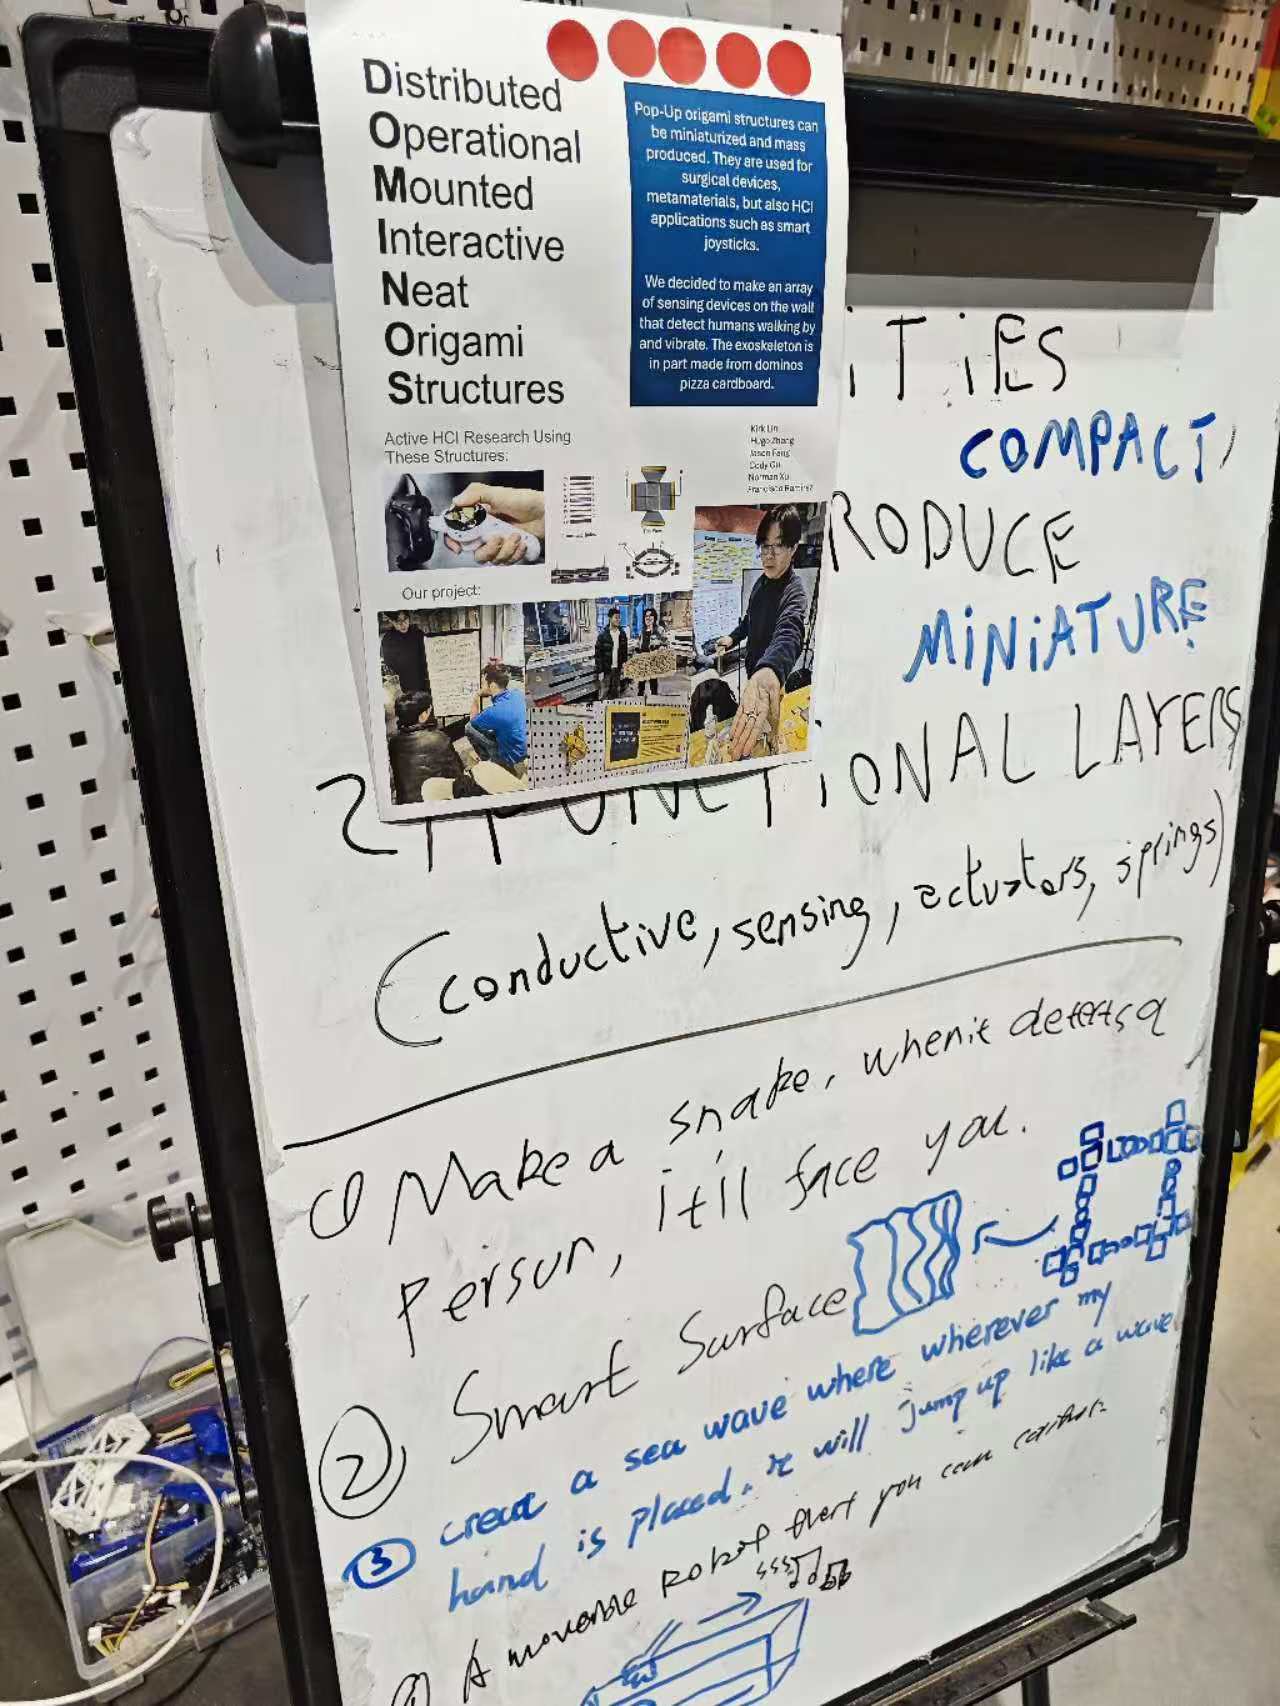 Distributed
Operational
Mounted
Interactive
Neat
Origami
Structures
Pop-Up origami structures can
be miniaturized and mass
produced. They are used for
surgical devices,
metamaterials, but also HCI
applications such as smart
joysticks.
We decided to make an array
of sensing devices on the wall
that detect humans walking by
and vibrate. The exoskeleton is
in part made from dominos
pizza cardboard.
Active HCI Research Using
These Structures:
Kirk Lin
Hugo Zhang
Jason Fang
Cody Gu
Norman Xu
Francisco Ramirez
Our project:
iTiES
COMPACT,
RODUCE
MiNiATURE
FUNCTIONAL LAYERS
(conductive, sensing, actuators, springs)
① Make a snake, when it detects a
Person, it'll face you.
② Smart Surface
③ create a sea wave where wherever my
hand is placed, it will jump up like a wave
A moveable Robot that you can